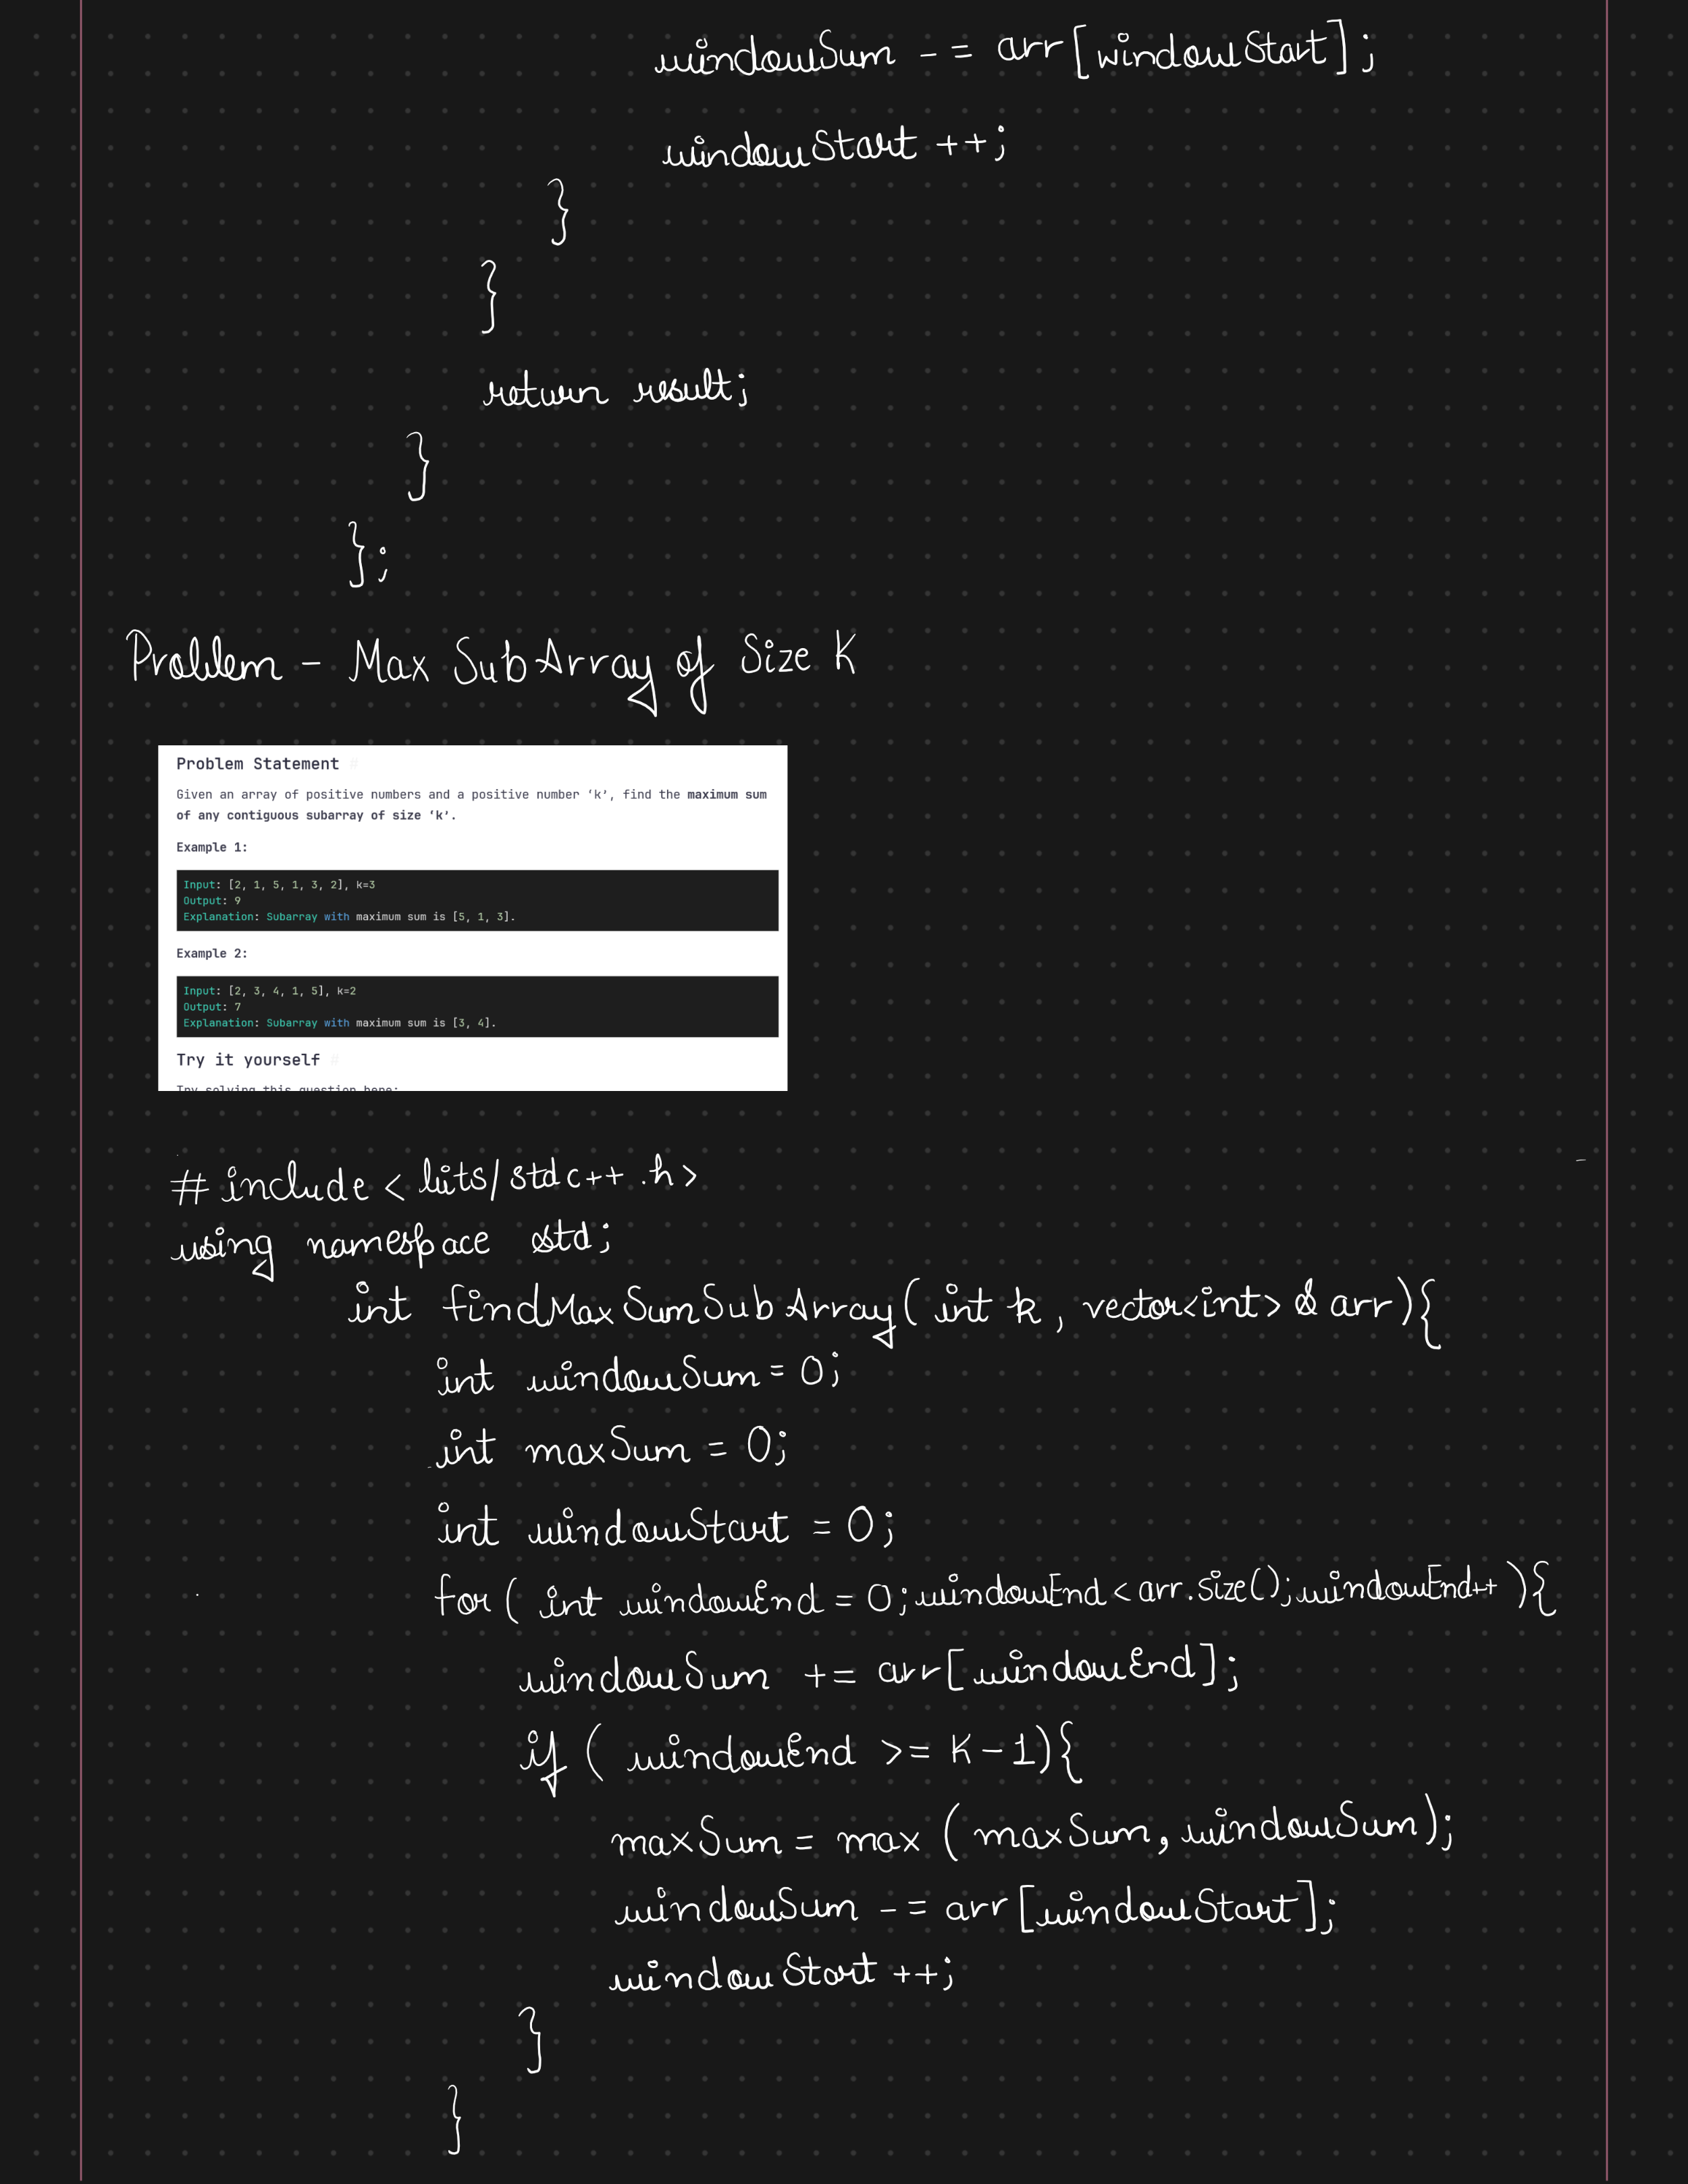 windowSum -= arr[windowStart];
windowStart ++;
}
}
return result;
}
};
Problem - Max SubArray of Size K
Problem Statement #
Given an array of positive numbers and a positive number ‘k’, find the maximum sum
of any contiguous subarray of size ‘k’.
Example 1:
Input: [2, 1, 5, 1, 3, 2], k=3
Output: 9
Explanation: Subarray with maximum sum is [5, 1, 3].
Example 2:
Input: [2, 3, 4, 1, 5], k=2
Output: 7
Explanation: Subarray with maximum sum is [3, 4].
Try it yourself #
Try solving this question here:
# include < bits/stdc++ .h>
using namespace std;
int findMaxSumSubArray( int k, vector<int> & arr){
int windowSum = 0;
int maxSum = 0;
int windowStart = 0;
for( int windowEnd = 0; windowEnd < arr.size(); windowEnd++ ){
windowSum += arr[windowEnd];
if ( windowEnd >= K-1){
maxSum = max ( maxSum, windowSum);
windowSum -= arr[windowStart];
windowStart ++;
}
}